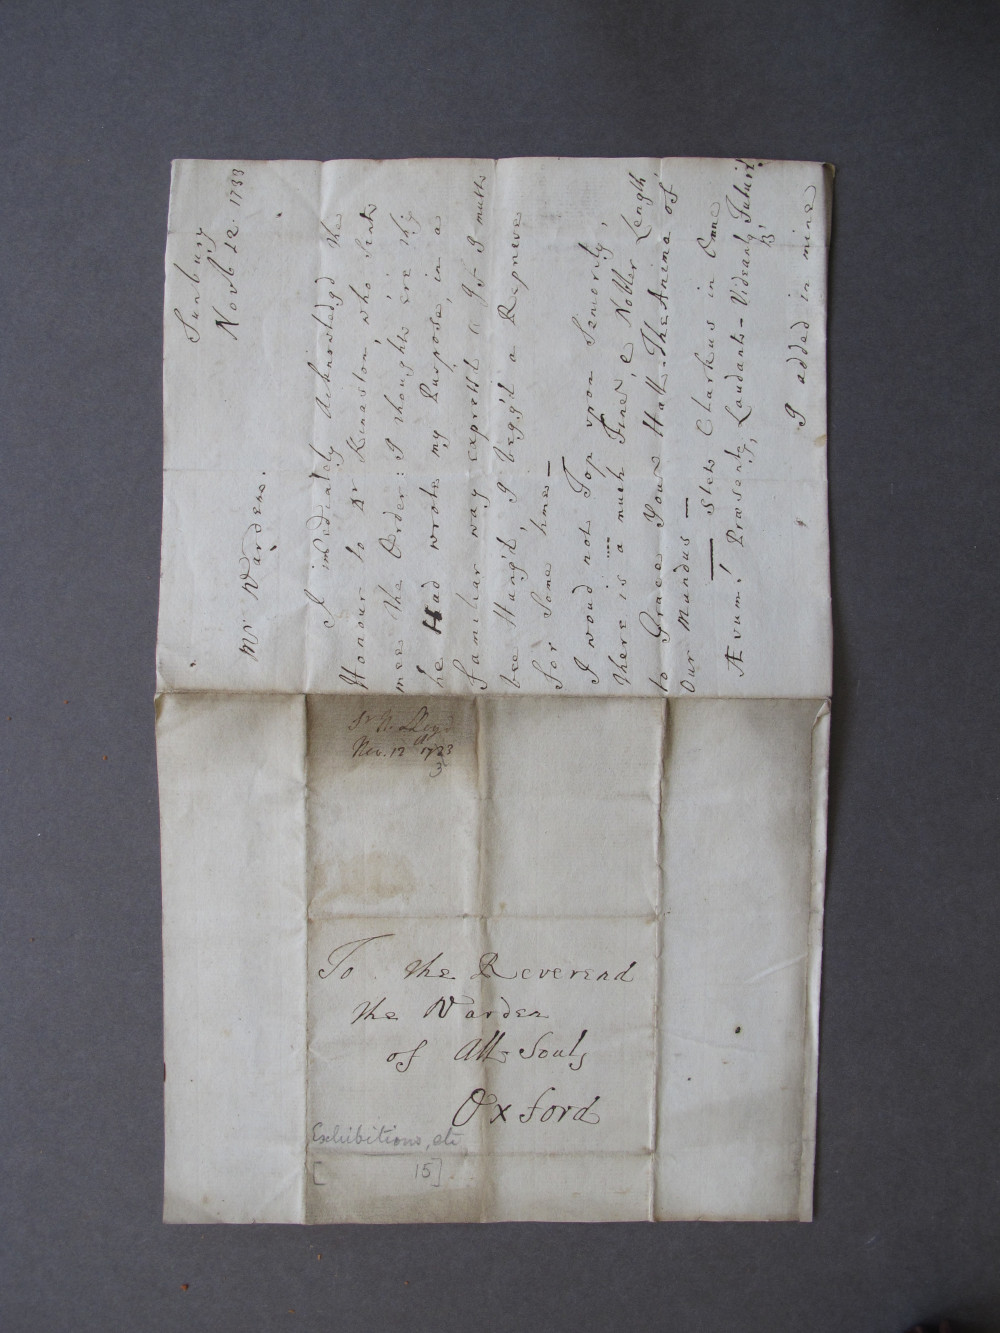 Sunbury
Novb 12. 1733
Mr Warden.
I imediately Acknowledgd the
Honour to Dr Kinaston, who Sent
mee the Order: I thought ere thy
he Had wrote my Purpose, in a
familiar way exprest it yt I must
bee Hang'd, I begg'd a Repreive
for Some time —
I woud not Top upon Seniority,
there is a much finer, & Nobler Length
to Grace Your Hall. The Anima of
Our Mundus —
— Stet Clarkus in Omne
Ævum! Præsents, Laudant – Videant, Futuri!
I added in mine
Sr N. Lloyd
Nov. 12th 1723
3
To the Reverend
the Warden
of All-Souls
Oxford
Exhibitions, etc
[ 15]